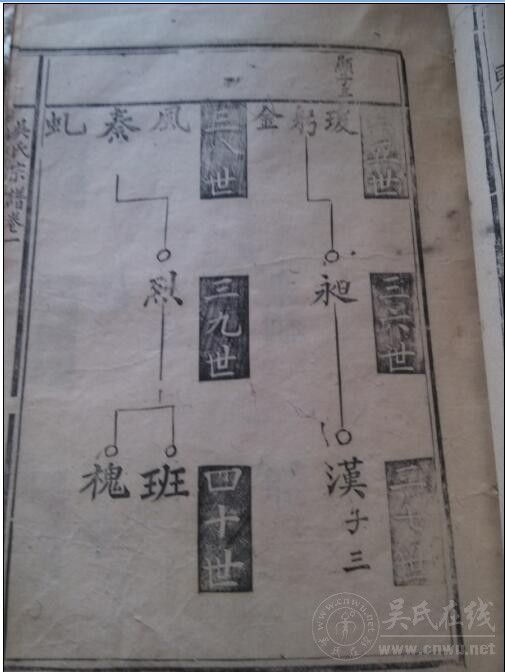 三五世
瑗
躬
金
三六世
昶
三七世
漢
子三
三八世
風
秦
虬
三九世
烈
四十世
班
槐
吳氏宗譜卷一
吴氏在线
www.cnwu.net